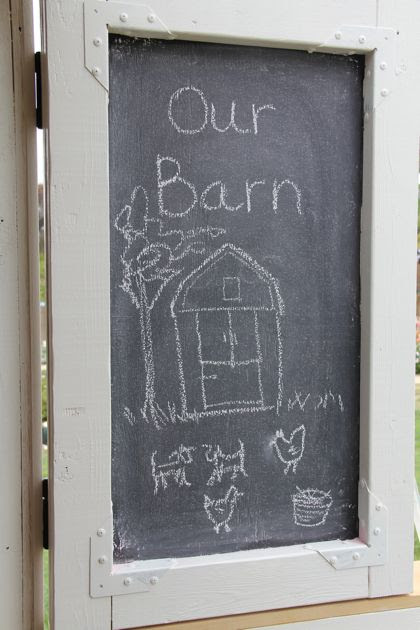 Our
Barn